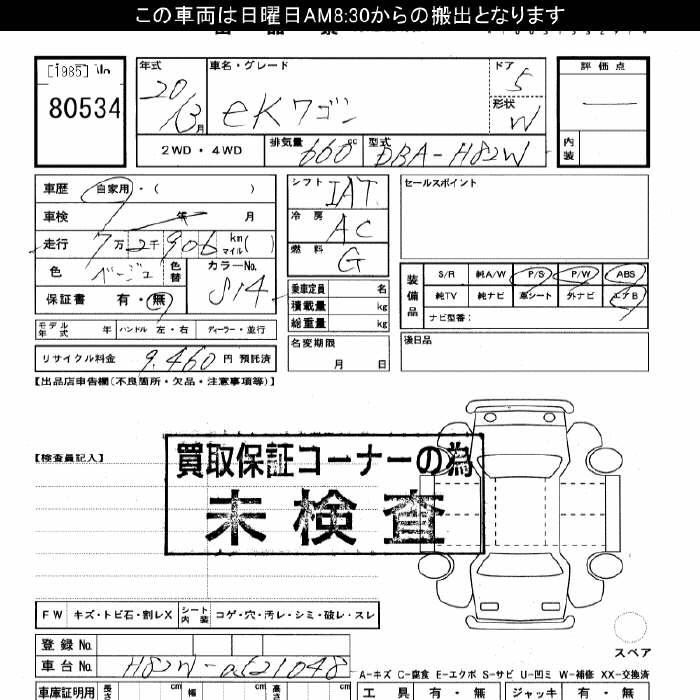 この車両は日曜日AM8:30からの搬出となります
[1985]
80534
年式
20
13月
車名・グレード
eKワゴン
ドア
5
形状
W
評価点
内装
2WD・4WD
排気量
660cc
型式
DBA-H82W
車歴
自家用・( )
車検
年 月
走行
7万2千906 km マイル( )
色
ベージュ
色替
カラーNo.
S14
保証書 有・無
シフト
IAT
冷房
AC
燃料
G
乗車定員 名
積載量 kg
総重量 kg
名変期限
月 日
セールスポイント
装備品
S/R 純A/W P/S P/W ABS
純TV 純ナビ 革シート 外ナビ エアB
ナビ型番:
後日品
モデル年式 年 ハンドル 左・右 ディーラー・並行
リサイクル料金 9,460円 預託済
【出品店申告欄(不良箇所・欠品・注意事項等)】
【検査員記入】
買取保証コーナーの為
未検査
FW キズ・トビ石・割レX シート内装 コゲ・穴・汚レ・シミ・破レ・スレ
スペア
登録No.
車台No. H82W-
A-キズ C-腐食 E-エクボ S-サビ U-凹ミ W-補修 XX-交換済
車庫証明用 長さ cm 幅 cm 高さ cm
工具 有・無 ジャッキ 有・無